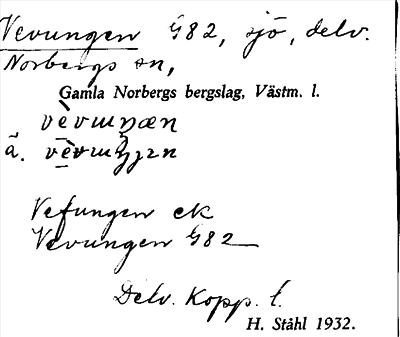 Vevungen G82, sjö, delv.
Norbergs sn,
Gamla Norbergs bergslag, Västm. l.
ä.
Vefungen ek
Vevungen G82
Delv. Kopp. l.
H. Ståhl 1932.